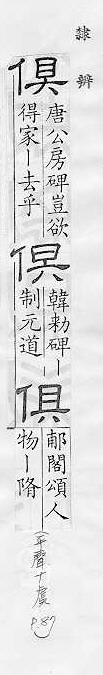 隸辨
俱
唐公房碑豈欲
得家｜去乎
俱
韓勑碑｜
制元道
俱
郙閣頌人
物｜隋
(平聲十虞 P.87)